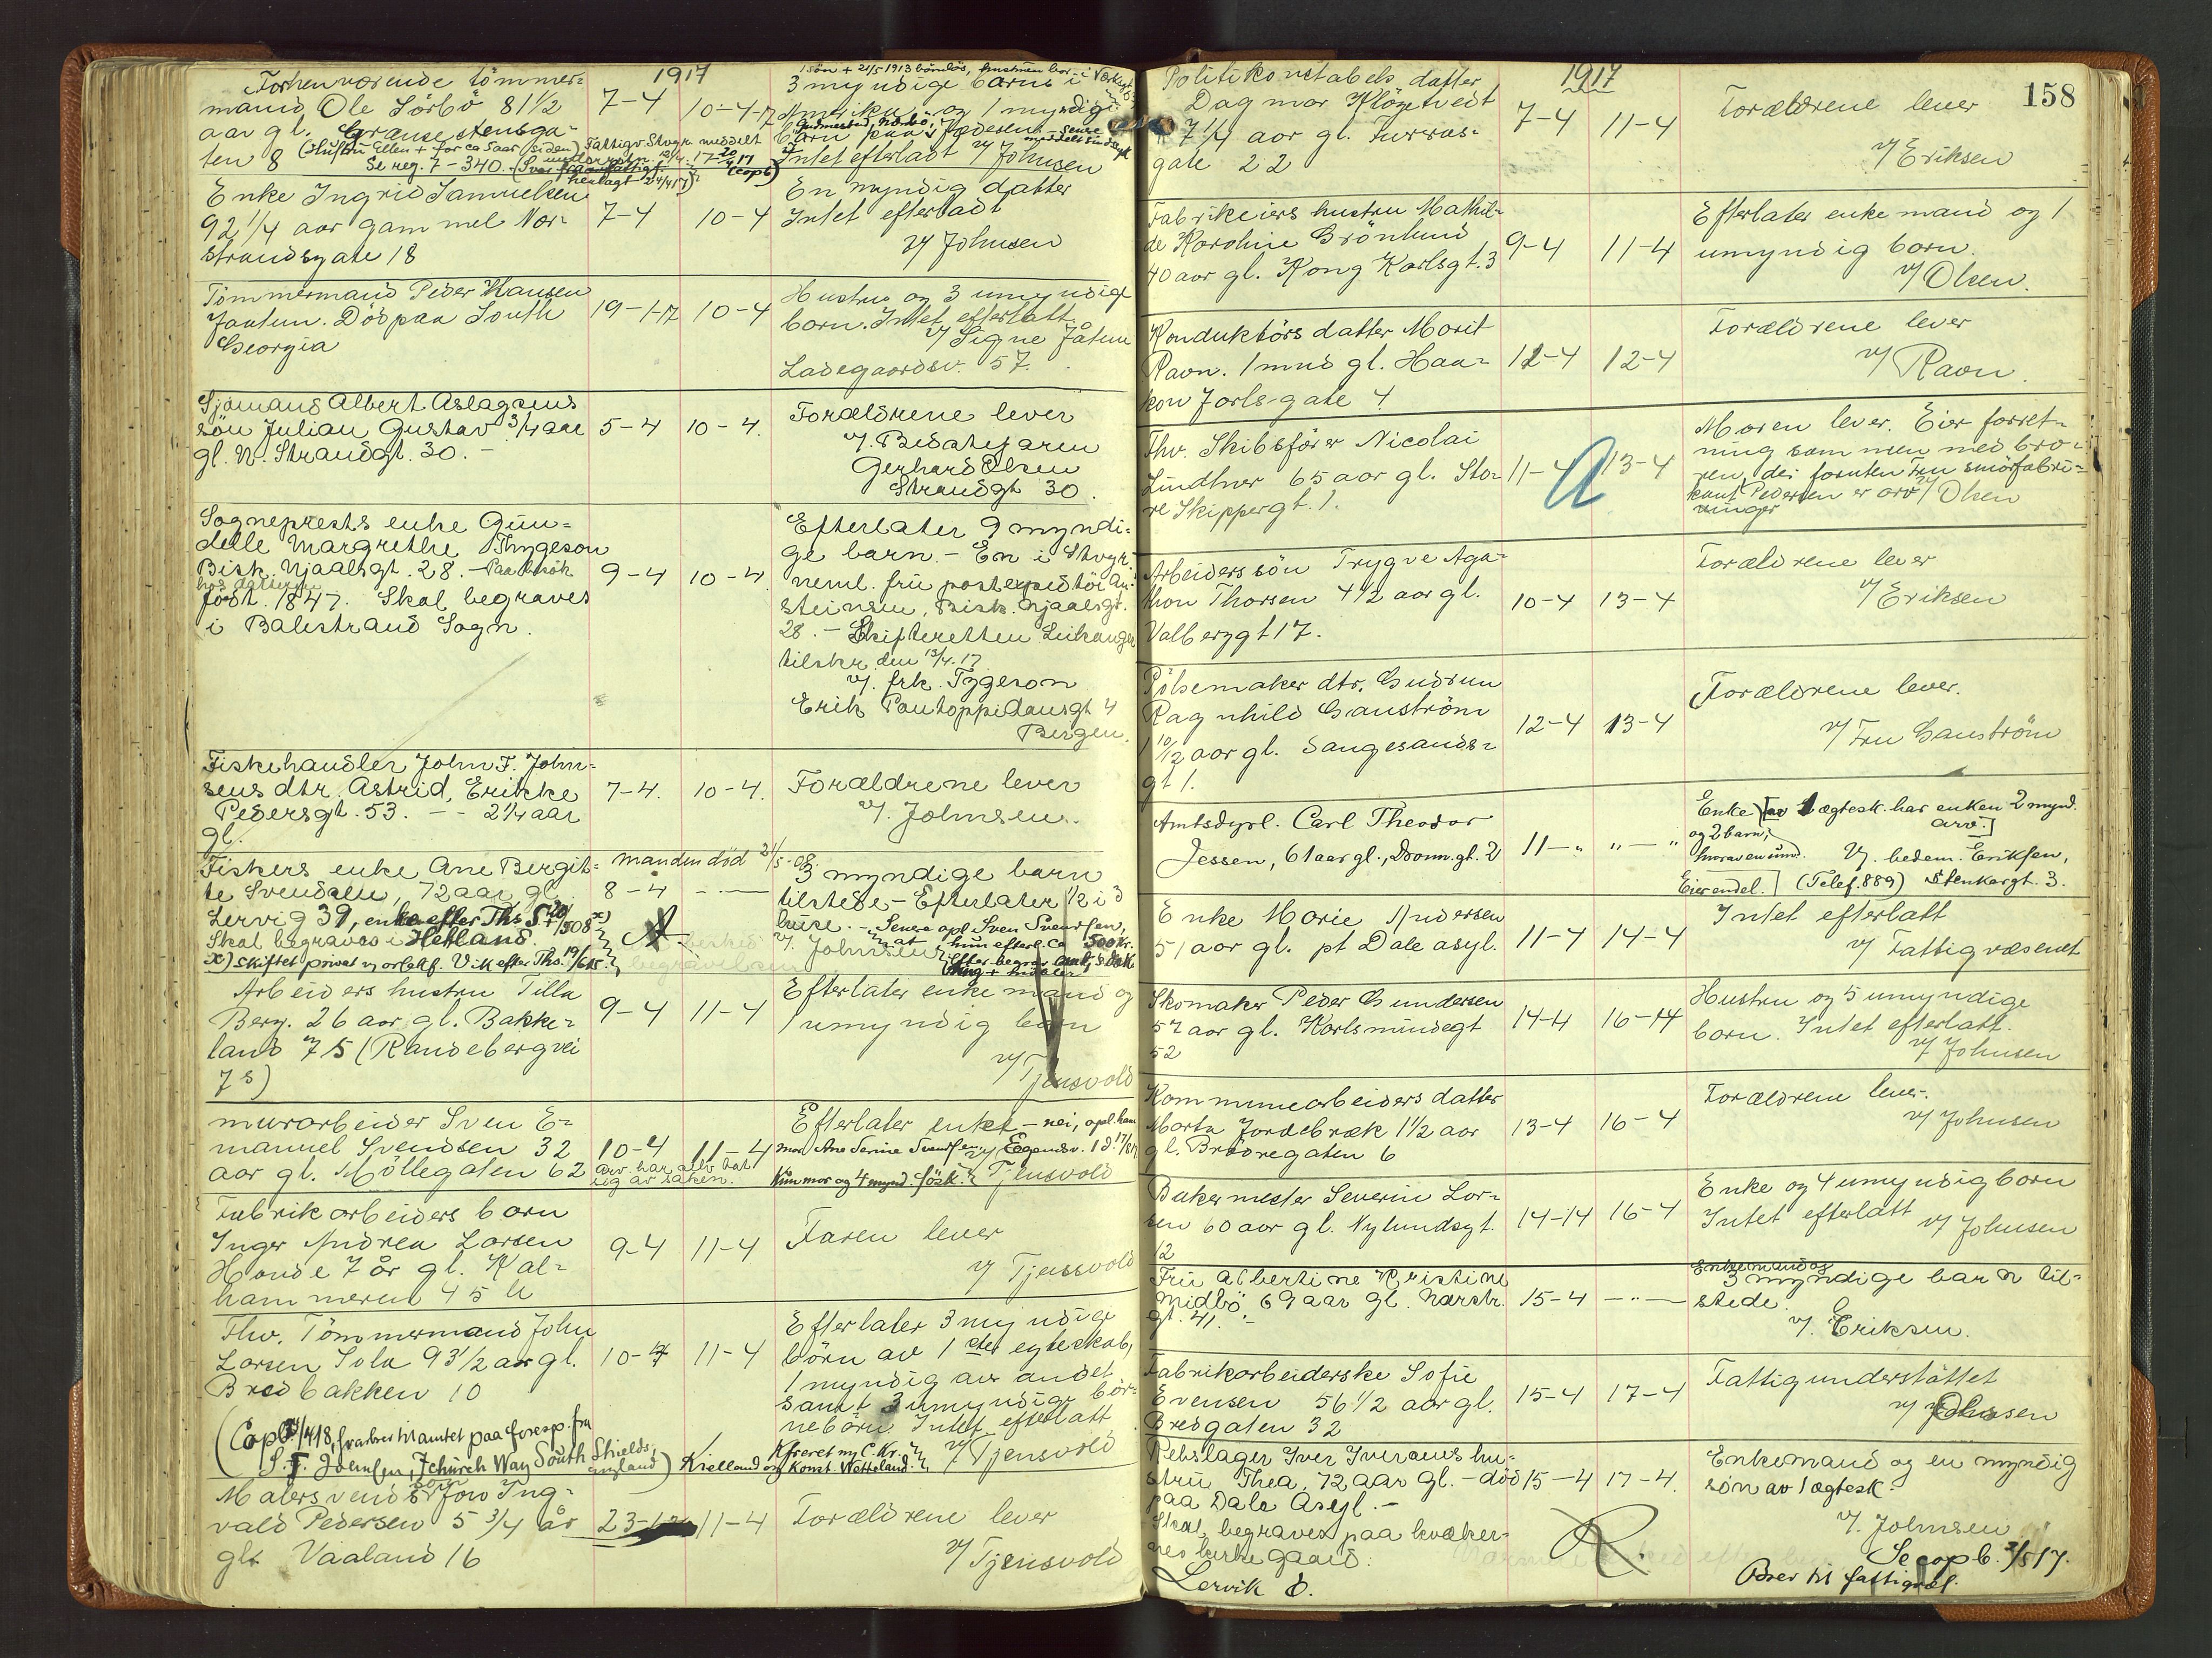 1917
Forhenværende tömmer-
mand Ole Sörbö 81 1/2
aar gl. Gransestensga-
ten 8
Se reg. 7-340.
7-4 10-4-17
3 myndige barn i
Amerika og 1 myndig
barn paa Jæderen
Intet efterladt v/ Johnsen
Enke Ingrid Samuelsen
92 1/4 aar gammel Nor-
strandsgate 18
7-4 10-4
En myndig datter
Intet efterladt
v/ Johnsen
Tömmermand Peder Hansen
Jaatun. Död paa South
Georgia
19-1-17 10-4
Hustru og 3 umyndige
born. Intet efterlatt
v/ Signe Jåtun
Ladegaardsv. 57.
Sjömand Albert Aslagsens
sön Julian Gustav 3/4 aar
gl. N. Strandgt. 30. -
5-4 10-4.
Forældrene lever
v/. Bestefaren
Gerhard Olsen
Strandgt 30.
Sogneprests enke Gun-
delle Margrethe Thygeson
Bisk. Njaalsgt. 28. - Paa besök
hos datteren
födt. 1847. Skal begraves
i Balestrand Sogn.
9-4 10-4
Efterlater 9 myndi-
ge barn - En i Stvgr.
neml. fru postexpeditör An-
steinsen, Bisk. Njaalsgt.
28. - Skifteretten Leikanger
tilskr. den 13/4.17
v/. frk. Tygeson
Erik Pontoppidansgt 4
Bergen.
Fiskehandler John F. John-
sens dtr. Astrid, Erikke
Pedersgt. 53. - - 2 1/4 aar
gl.
7-4. 10-4.
Forældrene lever
v/. Johnsen.
Fiskers enke Ane Bergit-
te Svendsen, 72 aar gl.
Lervig 39, enke efter Ths. S
Skal begraves i Hetland.
x) Skiftet privat
manden död 21/5-08.
8-4
3 myndige barn
tilstede - Efterlater 1/2 i 3
huse. - Senere opl. Sven Svendsen,
v/. Johnsen
Arbeiders hustru Tilla
Berg. 26 aar gl. Bakke-
land 75 (Randebergvei
75)
9-4 11-4
Efterlater enkemand og
1 umyndig barn
v/ Tjensvold
murarbeider Sven E-
manuel Svendsen 32
aar gl. Möllegaten 62
10-4 11-4
Efterlater enke - nei, opl. han
mor Ane Serine Svendsen, Egensv.
Kun mor og 4 mynd. søsk. Tjensvold
Fabrikarbeiders barn
Inger Andrea Larsen
Hande 7 år gl. Kal-
hammeren 45 b
9-4 11-4
Faren lever
v/ Tjensvold
Fhv. Tömmermand John
Larsen Sola 93 1/2 aar gl.
Bredbakken 10
10-4 11-4
Efterlater 3 myndige
börn av 1ste egteskab,
1 myndig av andet
samt 3 umyndige bör-
nebörn Intet efterlatt
v/ Tjensvold
(Copb. svarbrev til amtet paa foresp. fra
Church Way South Shields,
England)
Kielland og Konst. Wetteland.
Malersvend
vald Pedersen 5 3/4 år
gl. Vaaland 16
11-4
Forældrene lever
v/ Tjensvold
1917
158
Politikonstabels datter
Dagmar Klögetvedt
7 1/4 aar gl. Furras-
gate 22
7-4 11-4
Forældrene lever
v/ Eriksen
Fabrikeiers hustru Mathil-
de Karoline Grönlund
40 aar gl. Kong Karlsgt. 3
9-4 11-4
Efterlater enkemand og 1
umyndig born.
v/ Olsen.
Konduktörs datter Marit
Ravn. 1 mnd gl. Haa-
kon Jarls-gate 4
12-4 12-4
Forældrene lever
v/ Ravn.
Fhv. Skibsförer Nicolai
Lindtner 65 aar gl. Sto-
re Skippergt. 1.
11-4 13-4
Moren lever. Eier forret-
ning sammen med bro-
ren, des foruten Fru smörfabri-
kant Pedersen er arv- v/ Olsen
vinger
Arbeiders sön Trygve Aga-
thon Thorsen 4 1/2 aar gl.
Valberggt 17.
10-4 13-4
Forældrene lever
v/ Eriksen
Pölsemaker dtr. Gudrun
Ragnhild Ganström
1 10/12 aar gl. Sangesands-
gt 1.
12-4 13-4
Forældrene lever.
v/ Fru Ganström
Amtsdyrl. Carl Theodor
Jessen, 61 aar gl., Dronn.gt. 2
11-" "-"
Enke [av 1 ægtesk. har enken 2 mynd.
arv.]
og 2 barn,
hvorav en um. v/. bedem. Eriksen,
Eiendel.] (Telef. 889) Stenkargt. 3.
Enke Marie Andersen
51 aar gl. pt Dale asyl.
11-4 14-4
Intet efterlatt
v/ Fattigvæsenet
Skomaker Peder Gundersen
57 aar gl. Karlsmindegt
52
14-4 16-4
Hustru og 5 umyndige
born. Intet efterlatt.
v/ Johnsen
Kommunearbeiders datter
Marta Jordebræk 1 1/2 aar
gl. Brödregaten 6
13-4 16-4
Forældrene lever.
v/ Johnsen
Bakermester Severin Lar-
sen 60 aar gl. Nylundsgt.
12
14-4 16-4
Enke og 4 umyndig born
Intet efterlatt v/ Johnsen
Fru Albertine Kristine
Midbö 69 aar gl. Nærstr.
gt. 41. -
15-4 -"-
Enkemand og
3 myndige barn til-
stede.
v/. Eriksen.
Fabrikarbeiderske Sofie
Evensen 56 1/2 aar gl.
Bredgaten 32
15-4 17-4
Fattigunderstöttet
v/ Johnsen
Rebslager Iver Iversens hu-
stru Thea, 72 aar gl. - död
paa Dale Asyl. -
Skal begraves paa kvæker-
nes kirkegaard.
Lervik 8.
15-4 17-4.
Enkemand og en myndig
søn av 1 ægtesk.
v/. Johnsen
Se copb. 3/5 17.
Brev til fattigvæs.